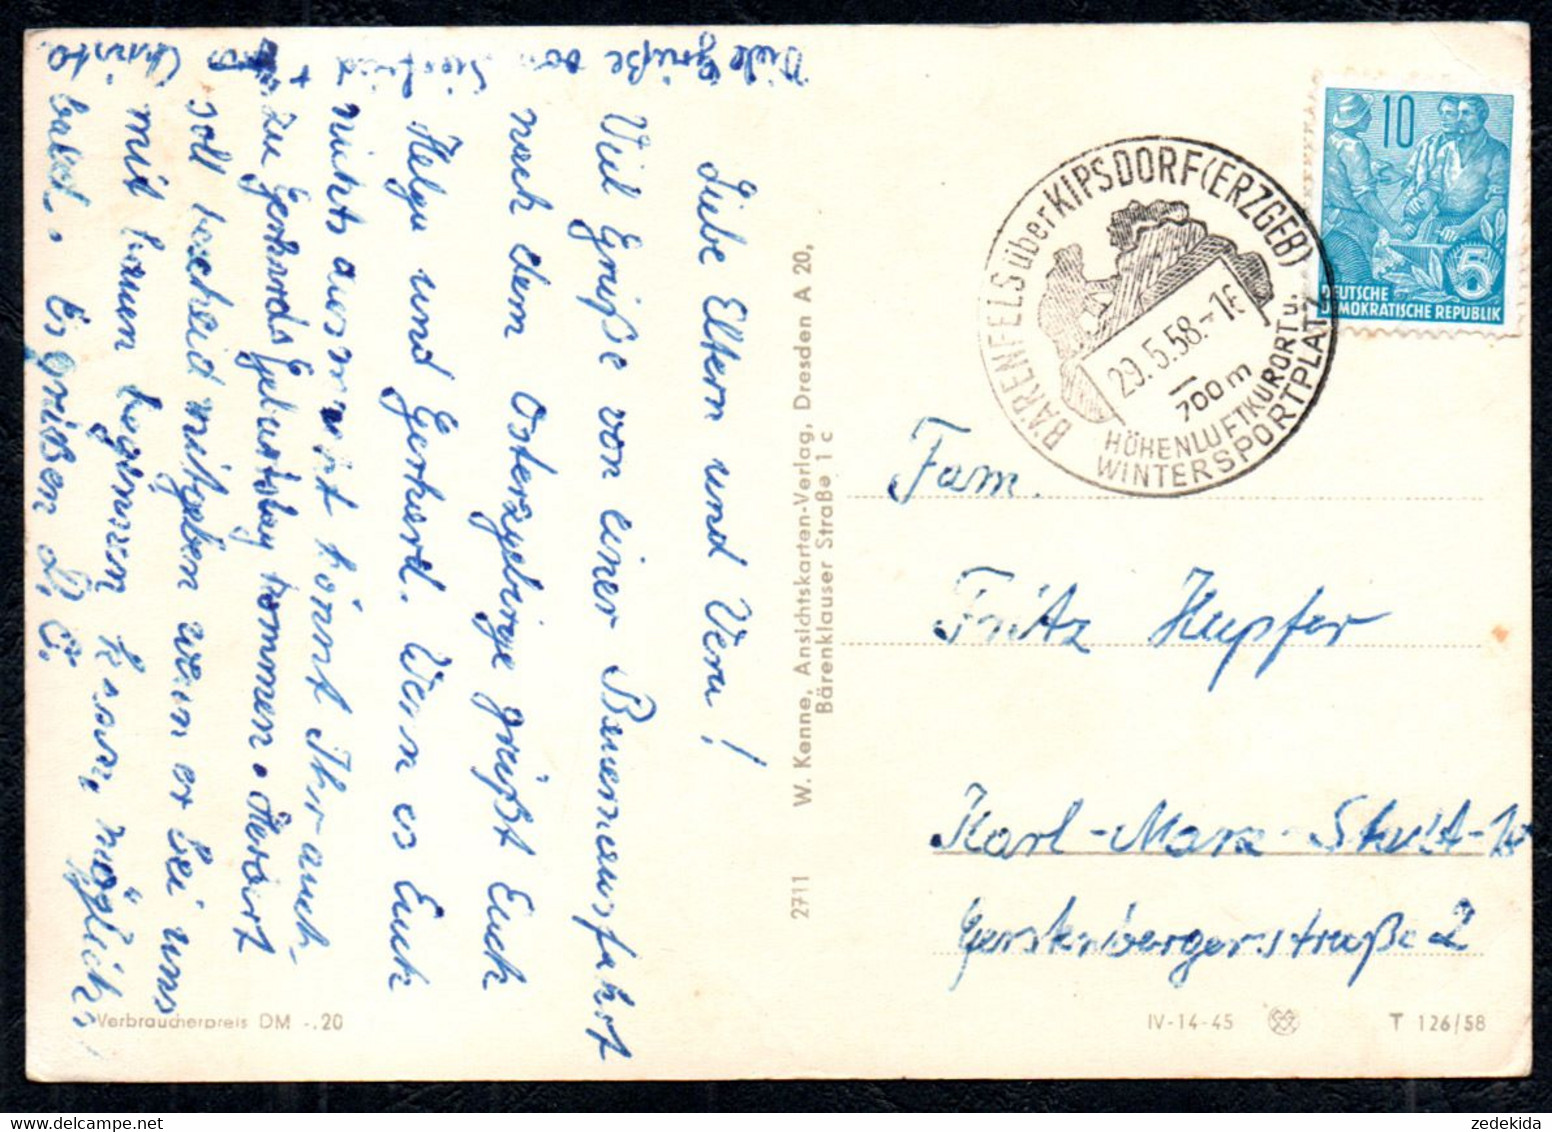 Liebe Eltern und Vera!
Viel Grüße von einer Betriebsfahrt
nach dem Osterzgebirge grüßt Euch
Helga und Gerhard. Wenn es Euch
nichts ausmacht könnt Ihr auch
zu Gerhards Geburtstag kommen. Herbert
soll bescheid mitgeben wann er bei uns
mit bauen beginnen kann, möglichst
bald. Es grüßen d. O.
Viele Grüße von Siegfried
+
Christa
2711 W. Kenne, Ansichtskarten-Verlag, Dresden A 20,
Bärenklauser Straße 1 c
Verbraucherpreis DM -.20
10
5
DEUTSCHE
DEMOKRATISCHE REPUBLIK
BÄRENFELS über KIPSDORF (ERZGEB)
29.5.58.-16
700m
HÖHENLUFTKURORT u.
WINTERSPORTPLATZ
Fam.
Fritz Hupfer
Karl-Marx-Stadt
Gerstenbergerstraße 2
IV-14-45 T 126/58
zedekida